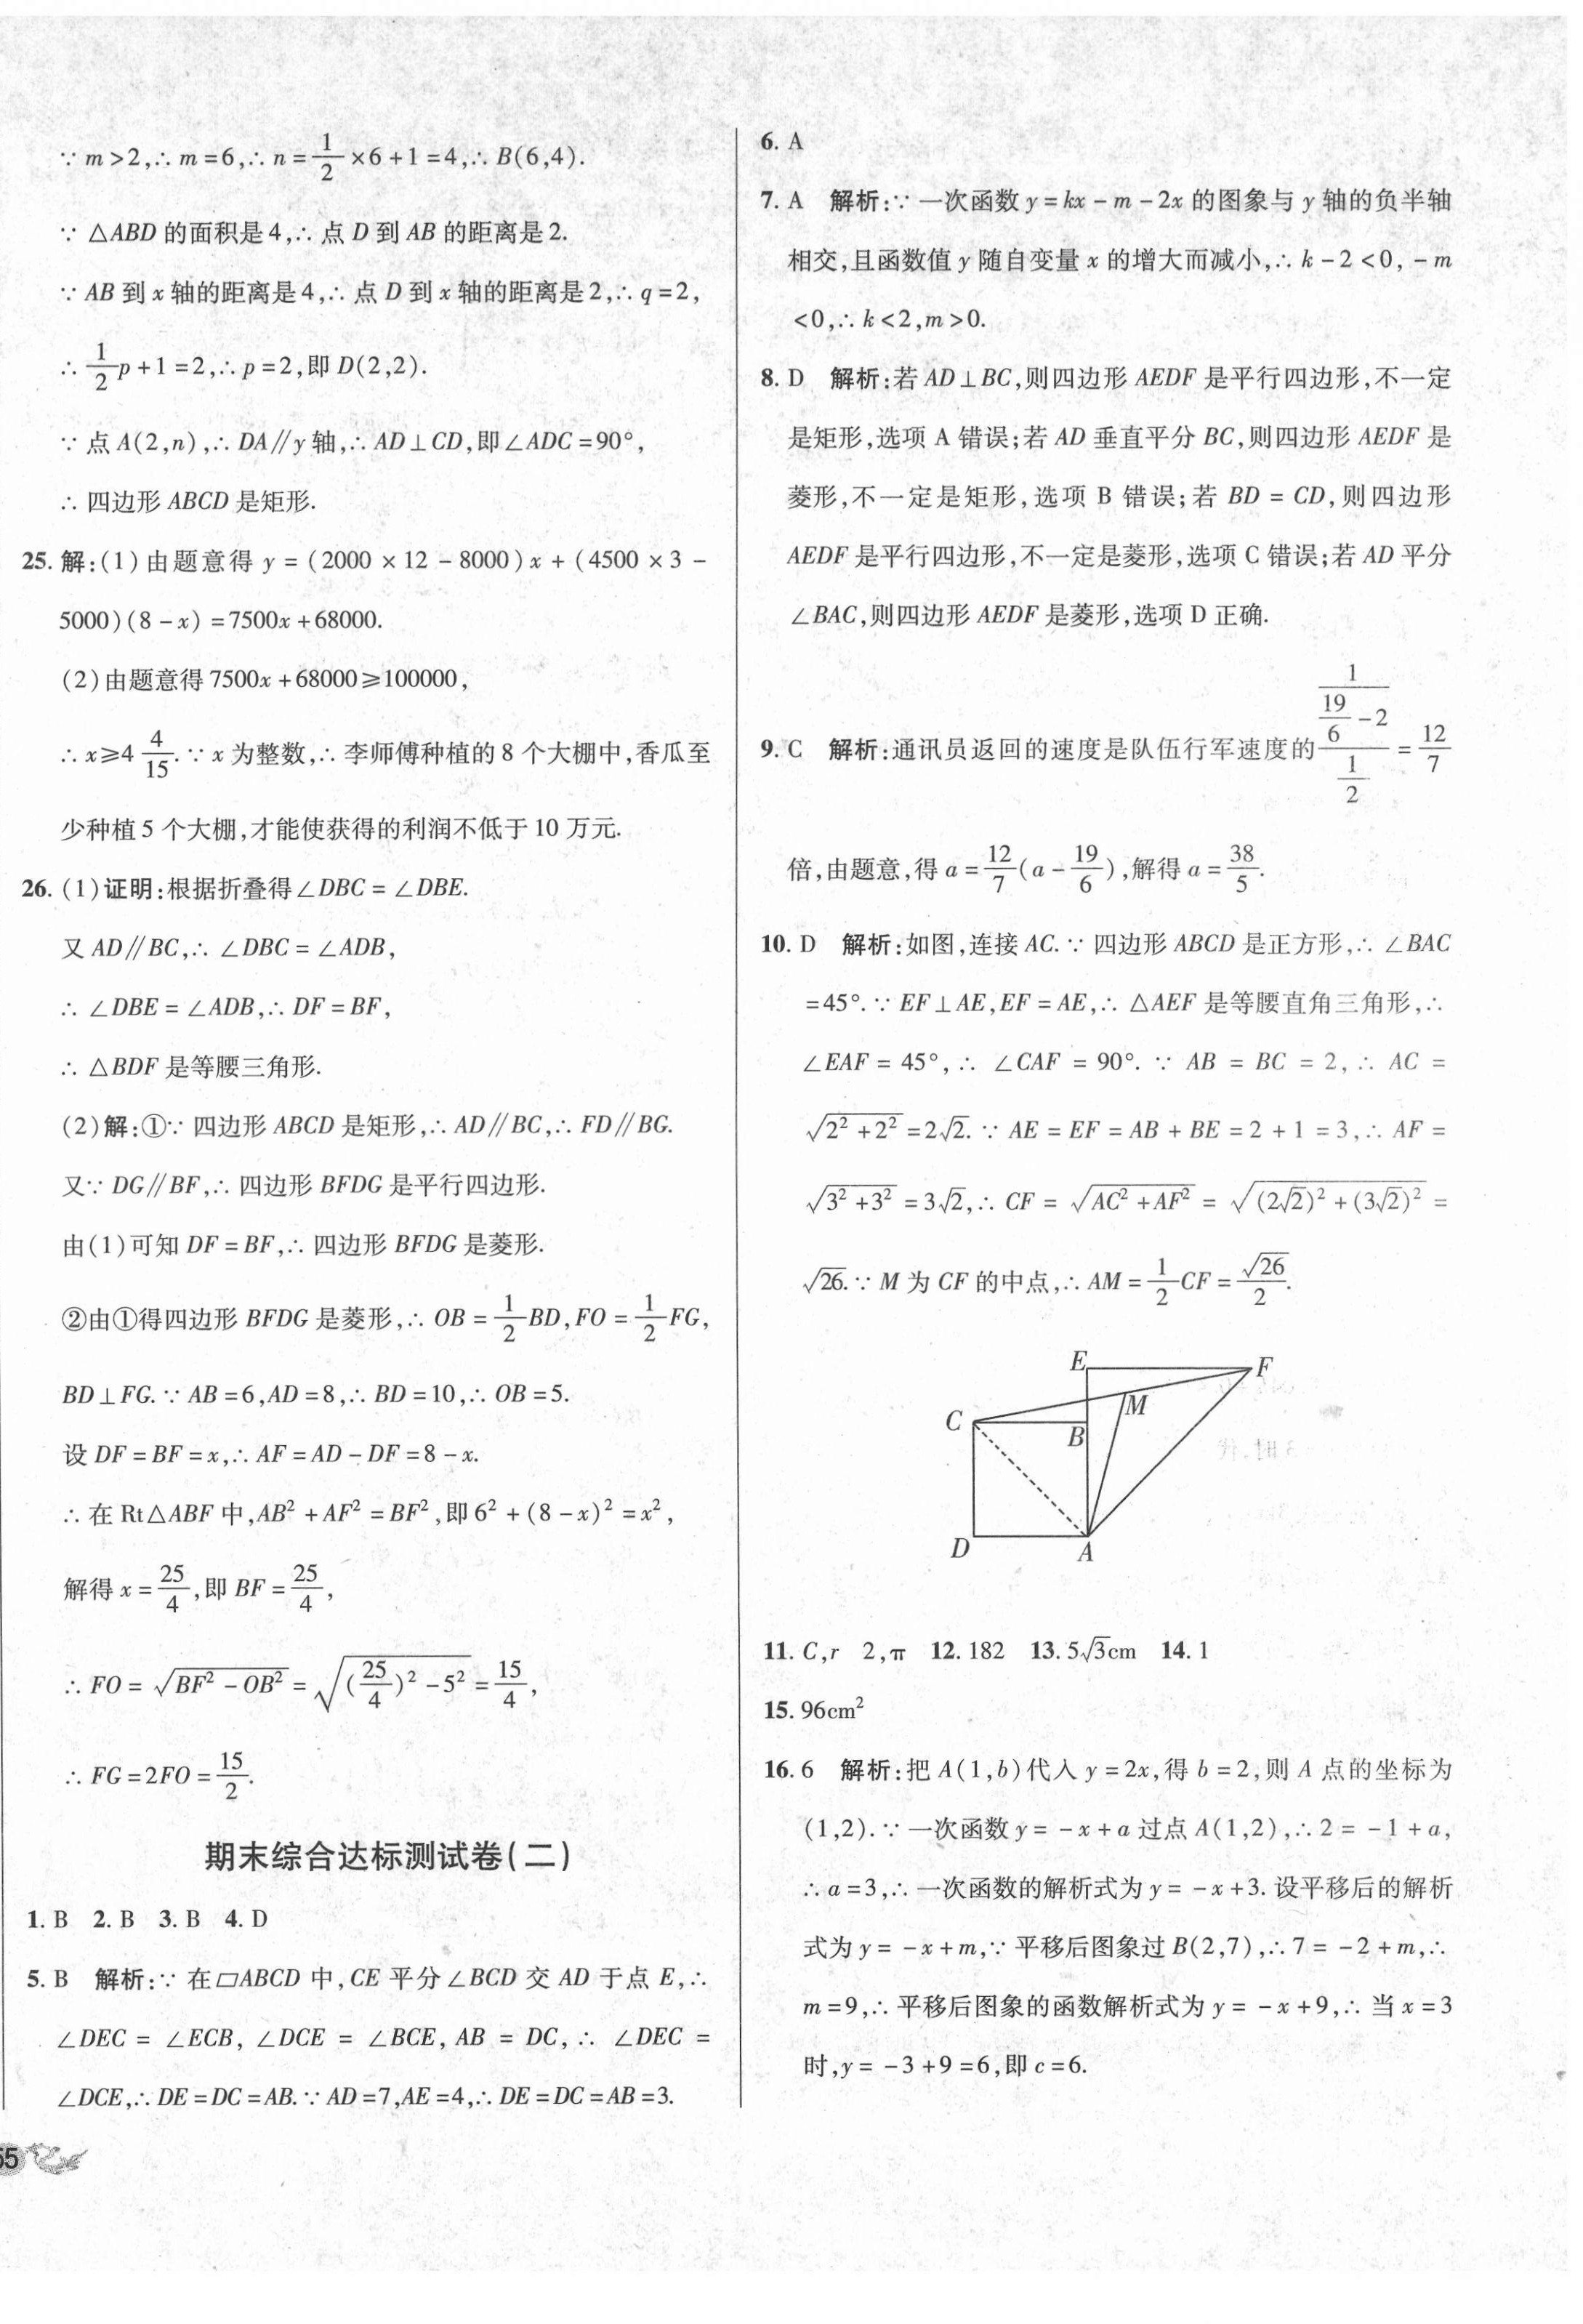 ∵ m>2,∴ m=6,∴ n=1/2×6+1=4,∴ B(6,4).
∵ △ABD 的面积是4,∴ 点 D 到 AB 的距离是2.
∵ AB 到 x 轴的距离是4,∴ 点 D 到 x 轴的距离是2,∴ q=2,
∴ 1/2p+1=2,∴ p=2,即 D(2,2).
∵ 点 A(2,n),∴ DA∥y 轴,∴ AD⊥CD,即∠ADC=90°,
∴ 四边形 ABCD 是矩形.
25. 解:(1)由题意得 y=(2000×12-8000)x+(4500×3-
5000)(8-x)=7500x+68000.
(2)由题意得 7500x+68000≥100000,
∴ x≥4 4/15.∵ x 为整数,∴ 李师傅种植的 8 个大棚中,香瓜至
少种植 5 个大棚,才能使获得的利润不低于 10 万元.
26. (1)证明:根据折叠得∠DBC=∠DBE.
又 AD∥BC,∴ ∠DBC=∠ADB,
∴ ∠DBE=∠ADB,∴ DF=BF,
∴ △BDF 是等腰三角形.
(2)解:①∵ 四边形 ABCD 是矩形,∴ AD∥BC,∴ FD∥BG.
又∵ DG∥BF,∴ 四边形 BFDG 是平行四边形.
由(1)可知 DF=BF,∴ 四边形 BFDG 是菱形.
②由①得四边形 BFDG 是菱形,∴ OB=1/2BD,FO=1/2FG,
BD⊥FG.∵ AB=6,AD=8,∴ BD=10,∴ OB=5.
设 DF=BF=x,∴ AF=AD-DF=8-x.
∴ 在 Rt△ABF 中,AB²+AF²=BF²,即 6²+(8-x)²=x²,
解得 x=25/4,即 BF=25/4,
∴ FO=√(BF²-OB²)=√((25/4)²-5²)=15/4,
∴ FG=2FO=15/2.
期末综合达标测试卷(二)
1. B 2. B 3. B 4. D
5. B 解析:∵ 在▱ABCD 中,CE 平分∠BCD 交 AD 于点 E,∴
∠DEC=∠ECB,∠DCE=∠BCE,AB=DC,∴ ∠DEC=
∠DCE,∴ DE=DC=AB.∵ AD=7,AE=4,∴ DE=DC=AB=3.
55
6. A
7. A 解析:∵ 一次函数 y=kx-m-2x 的图象与 y 轴的负半轴
相交,且函数值 y 随自变量 x 的增大而减小,∴ k-2<0,-m
<0,∴ k<2,m>0.
8. D 解析:若 AD⊥BC,则四边形 AEDF 是平行四边形,不一定
是矩形,选项 A 错误;若 AD 垂直平分 BC,则四边形 AEDF 是
菱形,不一定是矩形,选项 B 错误;若 BD=CD,则四边形
AEDF 是平行四边形,不一定是菱形,选项 C 错误;若 AD 平分
∠BAC,则四边形 AEDF 是菱形,选项 D 正确.
9. C 解析:通讯员返回的速度是队伍行军速度的(1/(19/6-2))/(1/2)=12/7
倍,由题意,得 a=12/7(a-19/6),解得 a=38/5.
10. D 解析:如图,连接 AC.∵ 四边形 ABCD 是正方形,∴ ∠BAC
=45°.∵ EF⊥AE,EF=AE,∴ △AEF 是等腰直角三角形,∴
∠EAF=45°,∴ ∠CAF=90°.∵ AB=BC=2,∴ AC=
√(2²+2²)=2√2.∵ AE=EF=AB+BE=2+1=3,∴ AF=
√(3²+3²)=3√2,∴ CF=√(AC²+AF²)=√((2√2)²+(3√2)²)=
√26.∵ M 为 CF 的中点,∴ AM=1/2CF=√26/2.
E F
M
C B
D A
11. C,r 2,π 12. 182 13. 5√3cm 14. 1
15. 96cm²
16. 6 解析:把 A(1,b)代入 y=2x,得 b=2,则 A 点的坐标为
(1,2).∵ 一次函数 y=-x+a 过点 A(1,2),∴ 2=-1+a,
∴ a=3,∴ 一次函数的解析式为 y=-x+3. 设平移后的解析
式为 y=-x+m,∵ 平移后图象过 B(2,7),∴ 7=-2+m,∴
m=9,∴ 平移后图象的函数解析式为 y=-x+9,∴ 当 x=3
时,y=-3+9=6,即 c=6.